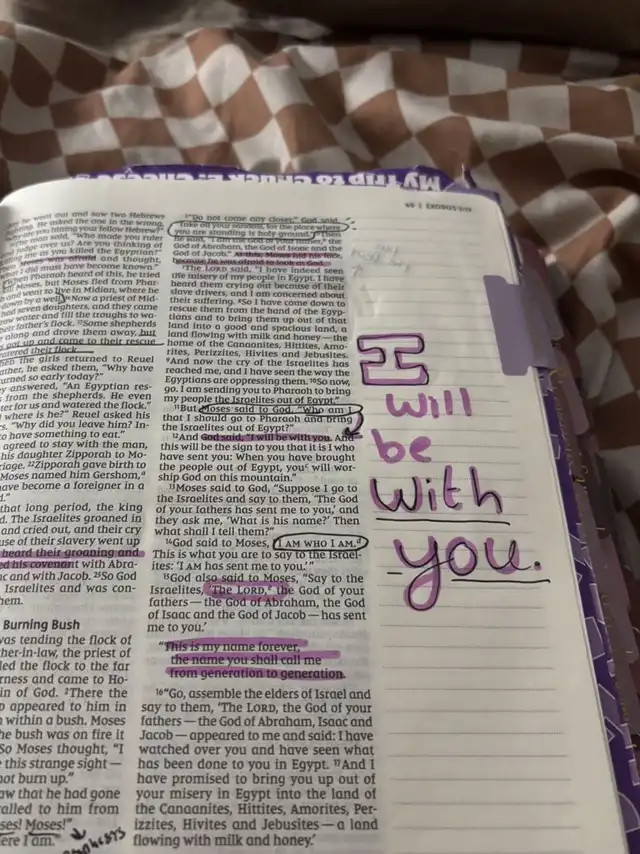 My Trip to Chuck E. Cheese's
49 | EXODUS 3:17
he went out and saw two Hebrews
He asked the one in the wrong,
are you hitting your fellow Hebrew?"
man said, "Who made you ruler
over us? Are you thinking of
me as you killed the Egyptian?"
was afraid and thought,
I did must have become known."
Pharaoh heard of this, he tried
Moses, but Moses fled from Phar-
and went to live in Midian, where he
down by a well. Now a priest of Mid-
had seven daughters, and they came
water and fill the troughs to wa-
their father's flock. 17Some shepherds
along and drove them away, but
got up and came to their rescue
watered their flock.
the girls returned to Reuel
father, he asked them, "Why have
returned so early today?"
answered, "An Egyptian res-
from the shepherds. He even
water for us and watered the flock."
where is he?" Reuel asked his
"Why did you leave him? In-
to have something to eat."
agreed to stay with the man,
his daughter Zipporah to Mo-
riage. 22Zipporah gave birth to
Moses named him Gershom,
have become a foreigner in a
that long period, the king
d. The Israelites groaned in
and cried out, and their cry
use of their slavery went up
heard their groaning and
ed his covenant with Abra-
ac and with Jacob. 25So God
Israelites and was con-
hem.
Burning Bush
was tending the flock of
her-in-law, the priest of
led the flock to the far
rness and came to Ho-
in of God. 2There the
appeared to him in
within a bush. Moses
he bush was on fire it
So Moses thought, "I
this strange sight—
not burn up."
aw that he had gone
called to him from
ses! Moses!"
ere I am."
5"Do not come any closer," God said.
"Take off your sandals, for the place where
you are standing is holy ground." 6Then
he said, "I am the God of your father, the
God of Abraham, the God of Isaac and the
God of Jacob." At this, Moses hid his face,
because he was afraid to look at God.
7The LORD said, "I have indeed seen
the misery of my people in Egypt. I have
heard them crying out because of their
slave drivers, and I am concerned about
their suffering. 8So I have come down to
rescue them from the hand of the Egyp-
tians and to bring them up out of that
land into a good and spacious land, a
land flowing with milk and honey—the
home of the Canaanites, Hittites, Amo-
rites, Perizzites, Hivites and Jebusites.
9And now the cry of the Israelites has
reached me, and I have seen the way the
Egyptians are oppressing them. 10So now,
go. I am sending you to Pharaoh to bring
my people the Israelites out of Egypt."
11But Moses said to God, "Who am I
that I should go to Pharaoh and bring
the Israelites out of Egypt?"
12And God said, "I will be with you. And
this will be the sign to you that it is I who
have sent you: When you have brought
the people out of Egypt, you will wor-
ship God on this mountain."
13Moses said to God, "Suppose I go to
the Israelites and say to them, 'The God
of your fathers has sent me to you,' and
they ask me, 'What is his name?' Then
what shall I tell them?"
14God said to Moses, "I AM WHO I AM.
This is what you are to say to the Israel-
ites: 'I AM has sent me to you.'"
15God also said to Moses, "Say to the
Israelites, 'The LORD, the God of your
fathers—the God of Abraham, the God
of Isaac and the God of Jacob—has sent
me to you.'
"This is my name forever,
the name you shall call me
from generation to generation.
16"Go, assemble the elders of Israel and
say to them, 'The LORD, the God of your
fathers—the God of Abraham, Isaac and
Jacob—appeared to me and said: I have
watched over you and have seen what
has been done to you in Egypt. 17And I
have promised to bring you up out of
your misery in Egypt into the land of
the Canaanites, Hittites, Amorites, Per-
izzites, Hivites and Jebusites—a land
flowing with milk and honey.'
I
will
be
with
you.